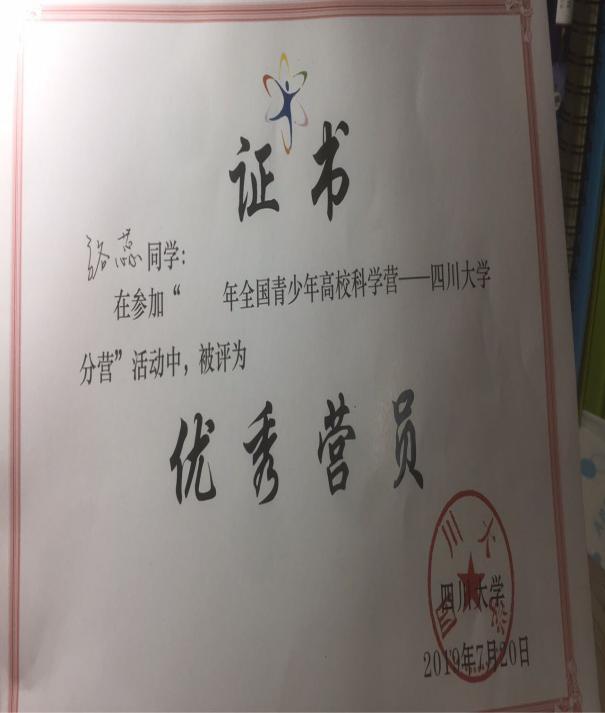 证书
路蕊同学:
在参加“ 年全国青少年高校科学营——四川大学
分营”活动中，被评为
优秀营员
四川大学
四川大学
2019年7月20日